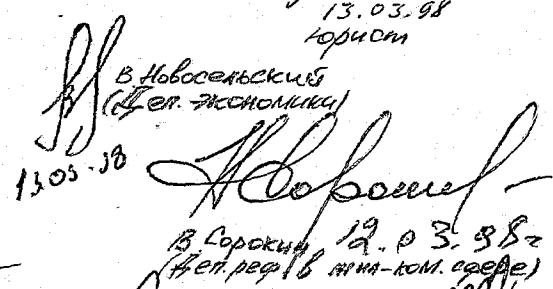 13.03.98
юрист
В. Новосельский
(Деп. экономики)
13.03.98
В. Сорокин 12.03.98г
(Деп. реф. в жил-ком. сфере)